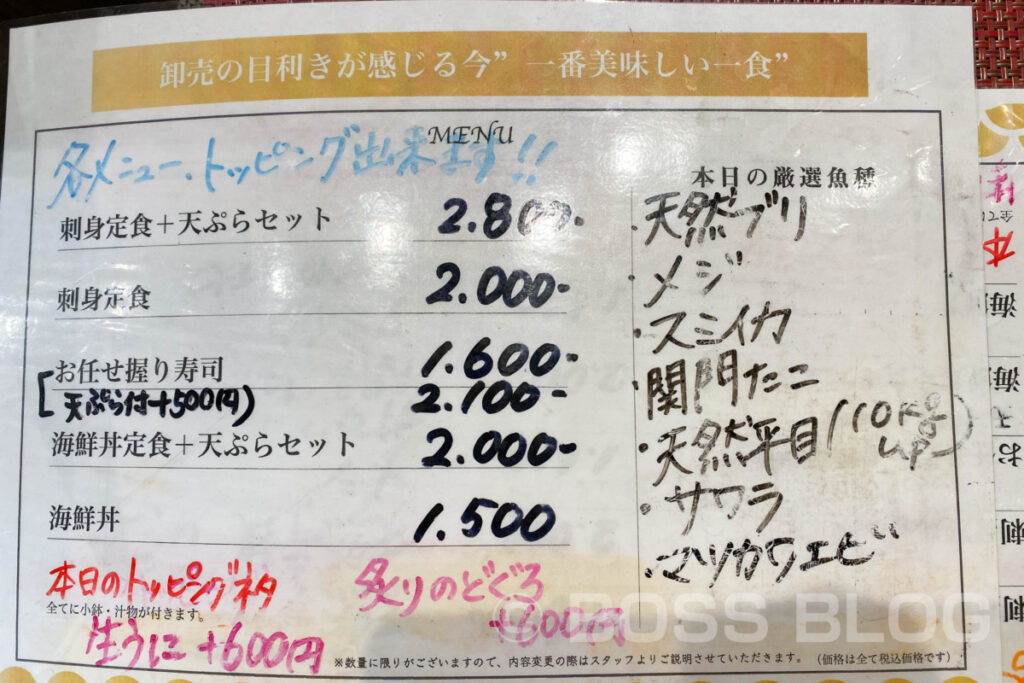 卸売の目利きが感じる今” 一番美味しい一食”
MENU
各メニュー、トッピング出来ます!!
刺身定食＋天ぷらセット 2.800-
刺身定食 2.000-
お任せ握り寿司 1.600-
天ぷら付+500円) 2.100-
海鮮丼定食＋天ぷらセット 2.000-
海鮮丼 1.500
本日のトッピングネタ
全てに小鉢・汁物が付きます。
生うに +600円
炙りのどぐろ
+600円
本日の厳選魚種
・天然ブリ
・メジ
・スミイカ
・関門たこ
・天然平目(10kg up)
・サワラ
・マツカワエビ
※数量に限りがございますので、内容変更の際はスタッフよりご説明させていただきます。 （価格は全て税込価格です）
© BOSS BLOG
本
海
海
お
刺
刺